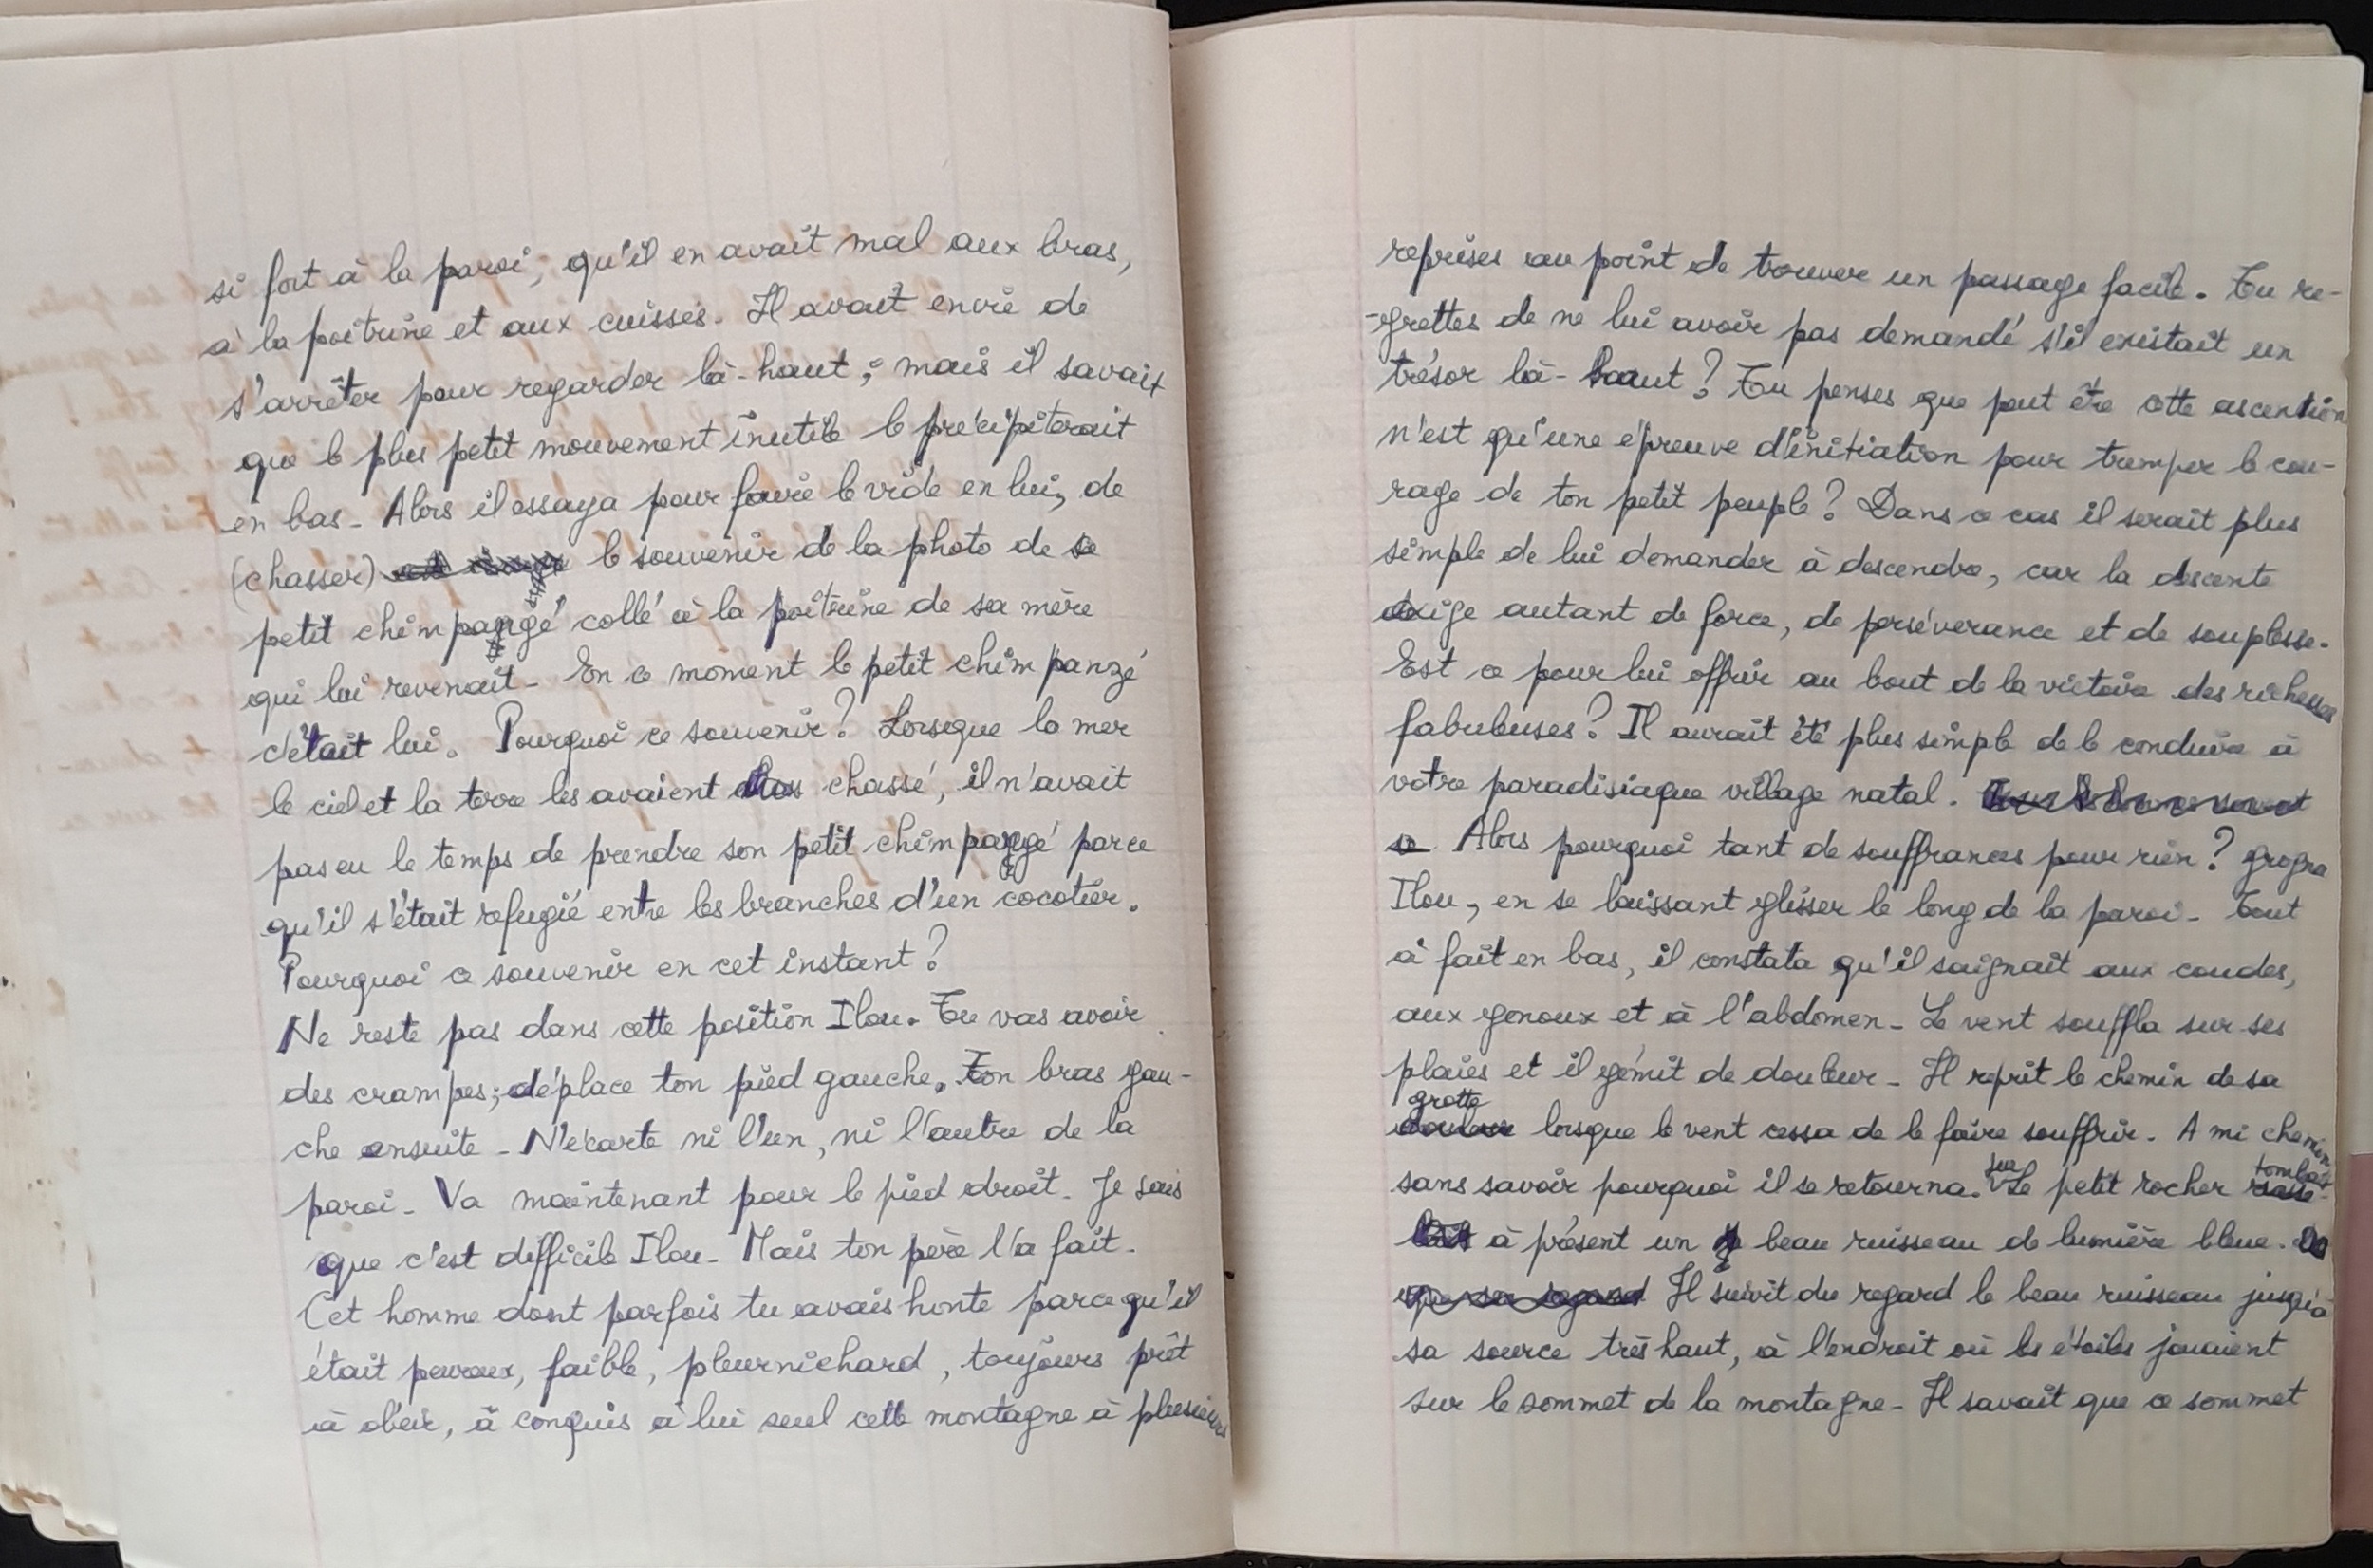 si fort à la paroi, qu'il en avait mal aux bras,
à la poitrine et aux cuisses. Il avait envie de
s'arrêter pour regarder là-haut; mais il savait
que le plus petit mouvement inutile le précipiterait
en bas - Alors il essaya pour faire le vide en lui, de
(chasser) le souvenir de la photo de ce
petit chimpanzé collé à la poitrine de sa mère
qui lui revenait - En ce moment le petit chimpanzé
c'était lui. Pourquoi ce souvenir? Lorsque la mer
le ciel et la terre les avaient chassé, il n'avait
pas eu le temps de prendre son petit chimpanzé parce
qu'il s'était refugié entre les branches d'un cocotier.
Pourquoi ce souvenir en cet instant?
Ne reste pas dans cette position Ilou. Tu vas avoir
des crampes; déplace ton pied gauche. Ton bras gau-
che ensuite - N'écarte ni l'un, ni l'autre de la
paroi - Va maintenant pour le pied droit - Je sais
que c'est difficile Ilou - Mais ton père l'a fait -
Cet homme dont parfois tu avais honte parce qu'il
était peureux, faible, pleurnichard, toujours prêt
à obéir, à conquis à lui seul cette montagne à plusieurs
reprises au point de trouver un passage facile. Tu re-
-grettes de ne lui avoir pas demandé s'il existait un
trésor là-haut? Tu penses que peut être cette ascention
n'est qu'une épreuve d'initiation pour tremper le cou-
rage de ton petit peuple? Dans ce cas il serait plus
simple de lui demander à descendre, car la descente
exige autant de force, de persévérance et de souplesse.
Est ce pour lui offrir au bout de la victoire des richesses
fabuleuses? Il aurait été plus simple de le conduire à
votre paradisiaque village natal.
Alors pourquoi tant de souffrances pour rien? grogna
Ilou, en se laissant glisser le long de la paroi - Tout
à fait en bas, il constata qu'il saignait aux coudes,
aux genoux et à l'abdomen - Le vent souffla sur ses
plaies et il gémit de douleur - Il reprit le chemin de sa
grotte lorsque le vent cessa de le faire souffrir - A mi chemin
sans savoir pourquoi il se retourna. sur Le petit rocher tombait
à présent un beau ruisseau de lumière bleue.
Il suivit du regard le beau ruisseau jusqu'à
sa source très haut, à l'endroit où les étoiles jouaient
sur le sommet de la montagne - Il savait que ce sommet